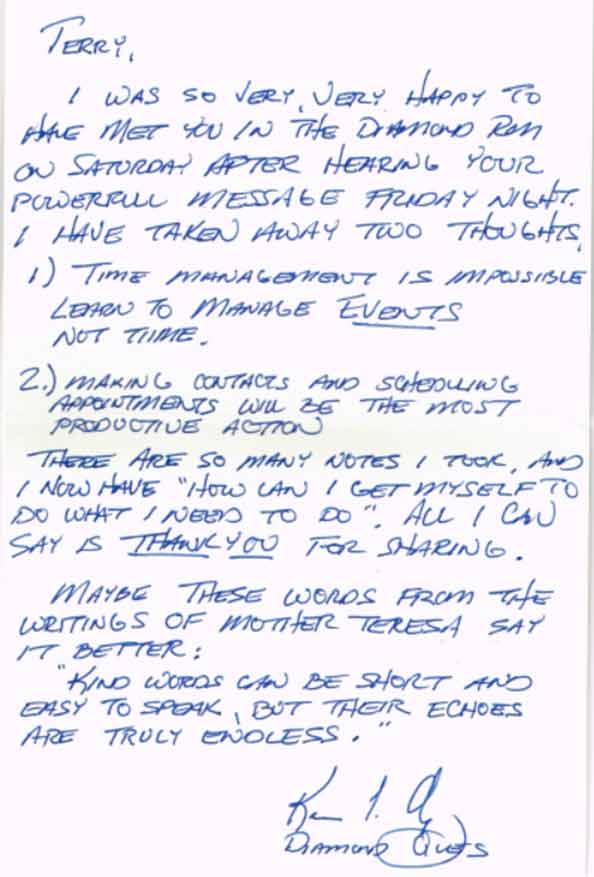 TERRY,
I WAS SO VERY, VERY HAPPY TO
HAVE MET YOU IN THE DIAMOND RM
ON SATURDAY AFTER HEARING YOUR
POWERFULL MESSAGE FRIDAY NIGHT.
I HAVE TAKEN AWAY TWO THOUGHTS,
1) TIME MANAGEMENT IS IMPOSSIBLE
LEARN TO MANAGE EVENTS
NOT TIME.
2.) MAKING CONTACTS AND SCHEDULING
APPOINTMENTS WILL BE THE MOST
PRODUCTIVE ACTION
THERE ARE SO MANY NOTES I TOOK, AND
I NOW HAVE "HOW CAN I GET MYSELF TO
DO WHAT I NEED TO DO". ALL I CAN
SAY IS THANK YOU FOR SHARING.
MAYBE THESE WORDS FROM THE
WRITINGS OF MOTHER TERESA SAY
IT BETTER:
"KIND WORDS CAN BE SHORT AND
EASY TO SPEAK, BUT THEIR ECHOES
ARE TRULY ENDLESS."
DIAMOND